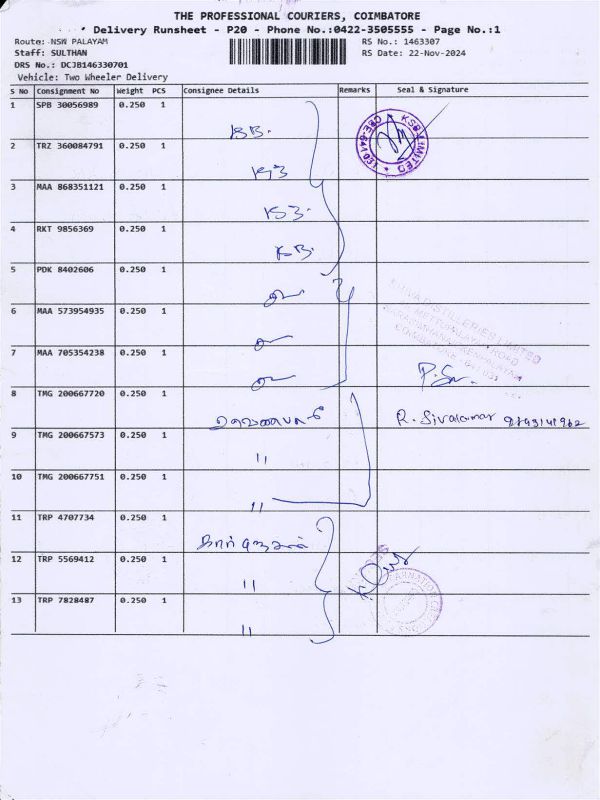 THE PROFESSIONAL COURIERS, COIMBATORE
Delivery Runsheet - P20 - Phone No.:0422-3505555 - Page No.:1
Route: NSW PALAYAM
RS No.: 1463307
Staff: SULTHAN
RS Date: 22-Nov-2024
DRS No.: DCJB146330701
Vehicle: Two Wheeler Delivery
S No Consignment No Weight PCS Consignee Details Remarks Seal & Signature
1 SPB 30056989 0.250 1
KSB LIMITED
KB.
2 TRZ 360084791 0.250 1
KB
3 MAA 868351121 0.250 1
KB.
4 RKT 9856369 0.250 1
KB.
5 PDK 8402606 0.250 1
DISTILLERIES LIMITED
6 MAA 573954935 0.250 1
7 MAA 705354238 0.250 1
8 TMG 200667720 0.250 1
R. Sivakumar
9 TMG 200667573 0.250 1
"
10 TMG 200667751 0.250 1
"
11 TRP 4707734 0.250 1
12 TRP 5569412 0.250 1
"
13 TRP 7828487 0.250 1
"